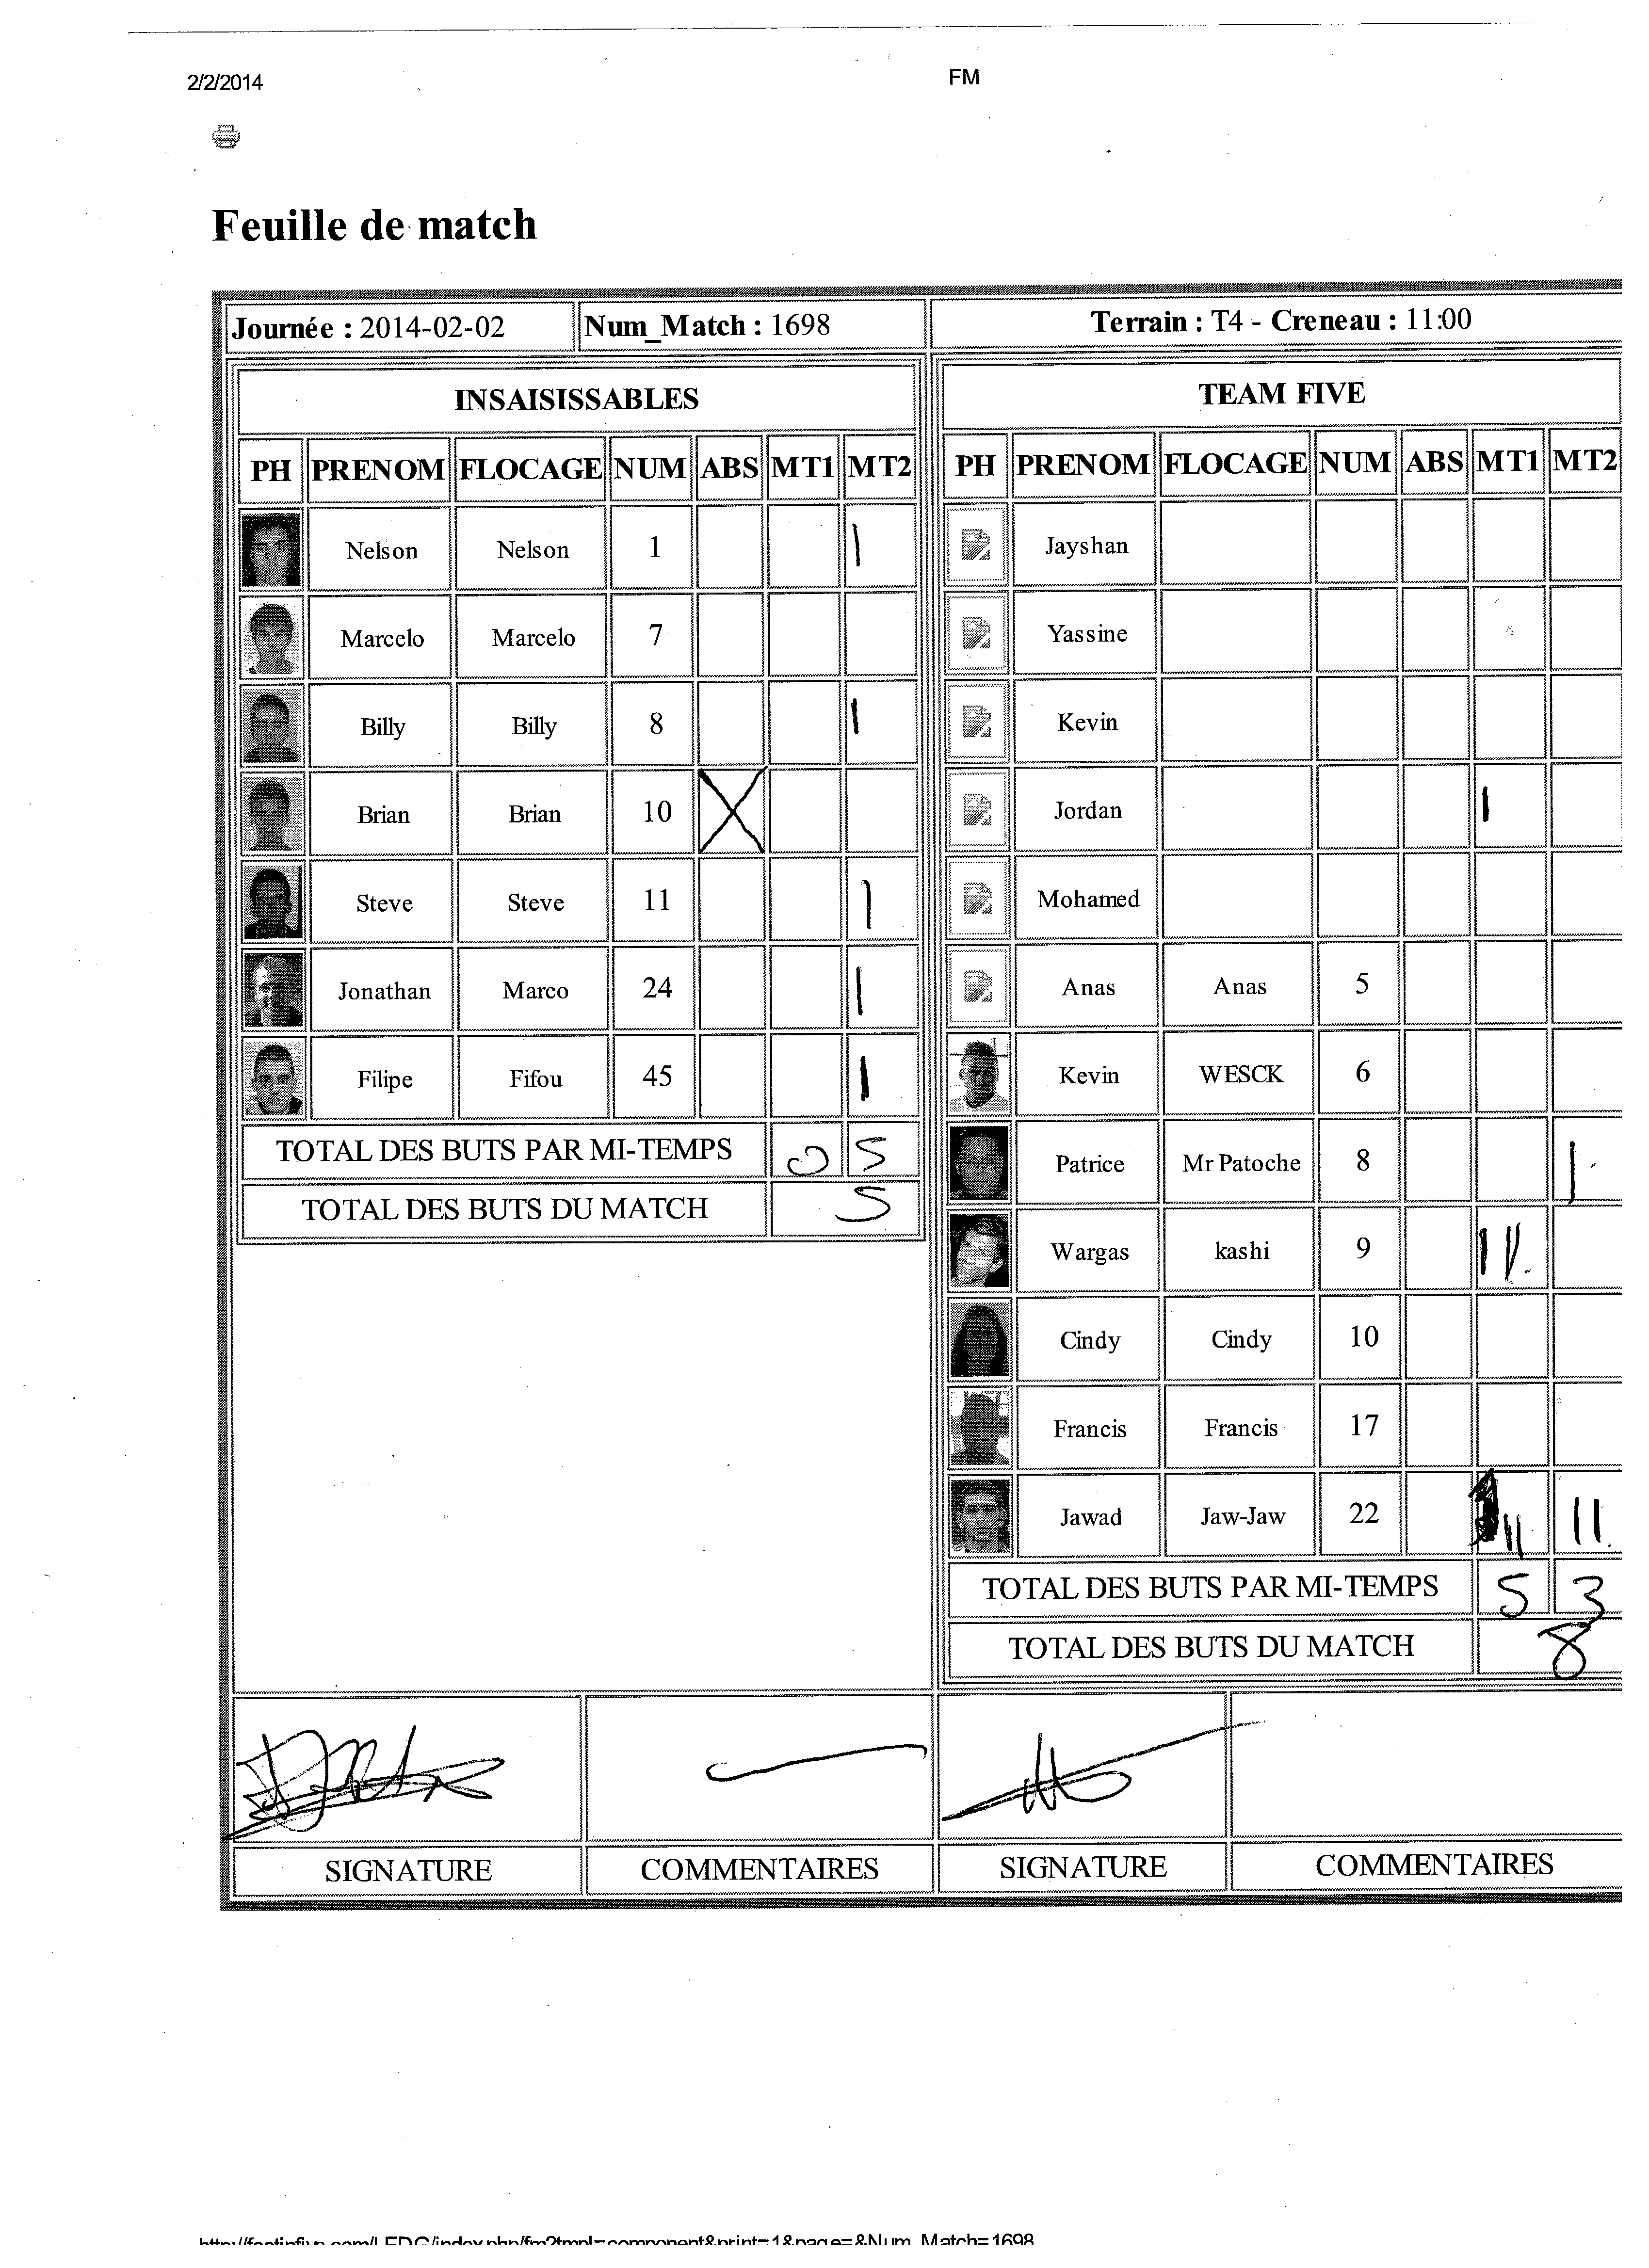 2/2/2014 FM
Feuille de match
Journée : 2014-02-02 Num_Match : 1698 Terrain : T4 - Creneau : 11:00
INSAISISSABLES
PH PRENOM FLOCAGE NUM ABS MT1 MT2
Nelson Nelson 1 |
Marcelo Marcelo 7
Billy Billy 8 |
Brian Brian 10 X
Steve Steve 11 |
Jonathan Marco 24 |
Filipe Fifou 45 |
TOTAL DES BUTS PAR MI-TEMPS 0 5
TOTAL DES BUTS DU MATCH 5
TEAM FIVE
PH PRENOM FLOCAGE NUM ABS MT1 MT2
Jayshan
Yassine
Kevin
Jordan |
Mohamed
Anas Anas 5
Kevin WESCK 6
Patrice Mr Patoche 8 |
Wargas kashi 9 ||
Cindy Cindy 10
Francis Francis 17
Jawad Jaw-Jaw 22 || ||
TOTAL DES BUTS PAR MI-TEMPS 5 3
TOTAL DES BUTS DU MATCH 8
SIGNATURE COMMENTAIRES SIGNATURE COMMENTAIRES
http://footinfive.com/LEDG/index.php/fm?tmpl=component&print=1&page=&Num_Match=1698